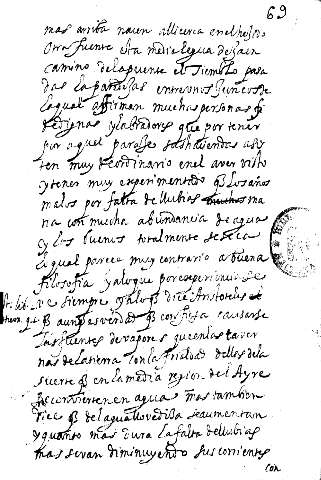 69
mas arriba nacen alli cerca en el hejido
otra fuente esta media legua de Jaen
camino de la puente el tiemblo pasa
das la paredejas entre unos Juncos de
la qual affirman muchas personas fi
dedignas y labradores que por tener
por aquel paraje sus haciendas asis
ten muy de ordinario en el aver visto
y tener muy experimentado q los años
malos por falta de llubias ma
na con mucha abundancia de agua
y los buenos totalmente se seca
lo qual parece muy contrario a buena
filosofia y a lo que por experiencia se
ve siempre y a lo q dice Aristoteles
q aunque es verdad q confiesa causarse
las fuentes de vapores que en las caver
nas de la tierra con la frialdad dellas de la
suerte q en la media region del Ayre
se convierten en agua mas tambien
dice q del agua llovediza se aumentan
y quanto mas dura la falta de llubias
mas se van diminuyendo sus corrientes
con